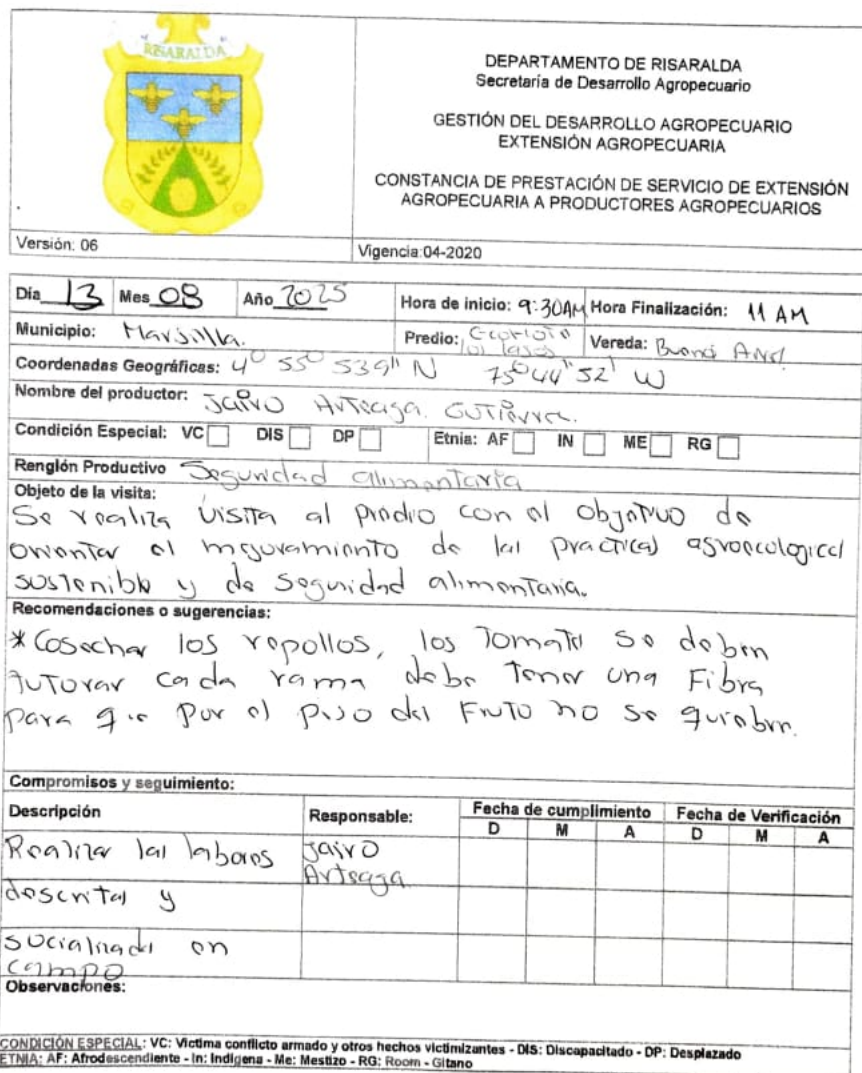 RISARALDA
DEPARTAMENTO DE RISARALDA
Secretaría de Desarrollo Agropecuario
GESTIÓN DEL DESARROLLO AGROPECUARIO
EXTENSIÓN AGROPECUARIA
CONSTANCIA DE PRESTACIÓN DE SERVICIO DE EXTENSIÓN
AGROPECUARIA A PRODUCTORES AGROPECUARIOS
Versión: 06
Vigencia:04-2020
Día 13 Mes 08 Año 2025 Hora de inicio: 9:30AM Hora Finalización: 11 AM
Municipio: Marsella. Predio: Vereda: Buena
Coordenadas Geográficas: 4° 55° 539" N 75° 44" 52' W
Nombre del productor: Jairo Arteaga Gutierrez.
Condición Especial: VC DIS DP Etnia: AF IN ME RG
Renglón Productivo Seguridad alimentaria
Objeto de la visita:
Se realiza visita al predio con el objetivo de
orientar el mejoramiento de las practicas agroecologicas
sostenible y de seguridad alimentaria.
Recomendaciones o sugerencias:
* Cosechar los repollos, los Tomates se deben
tutorar cada rama debe tener una Fibra
para que por el peso del Fruto no se quiebre.
Compromisos y seguimiento:
Descripción Responsable: Fecha de cumplimiento Fecha de Verificación
D M A D M A
Realizar las labores Jairo
Arteaga
descritas y
socializadas en
campo
Observaciones:
CONDICIÓN ESPECIAL: VC: Victima conflicto armado y otros hechos victimizantes - DIS: Discapacitado - DP: Desplazado
ETNIA: AF: Afrodescendiente - In: Indigena - Me: Mestizo - RG: Room - Gitano